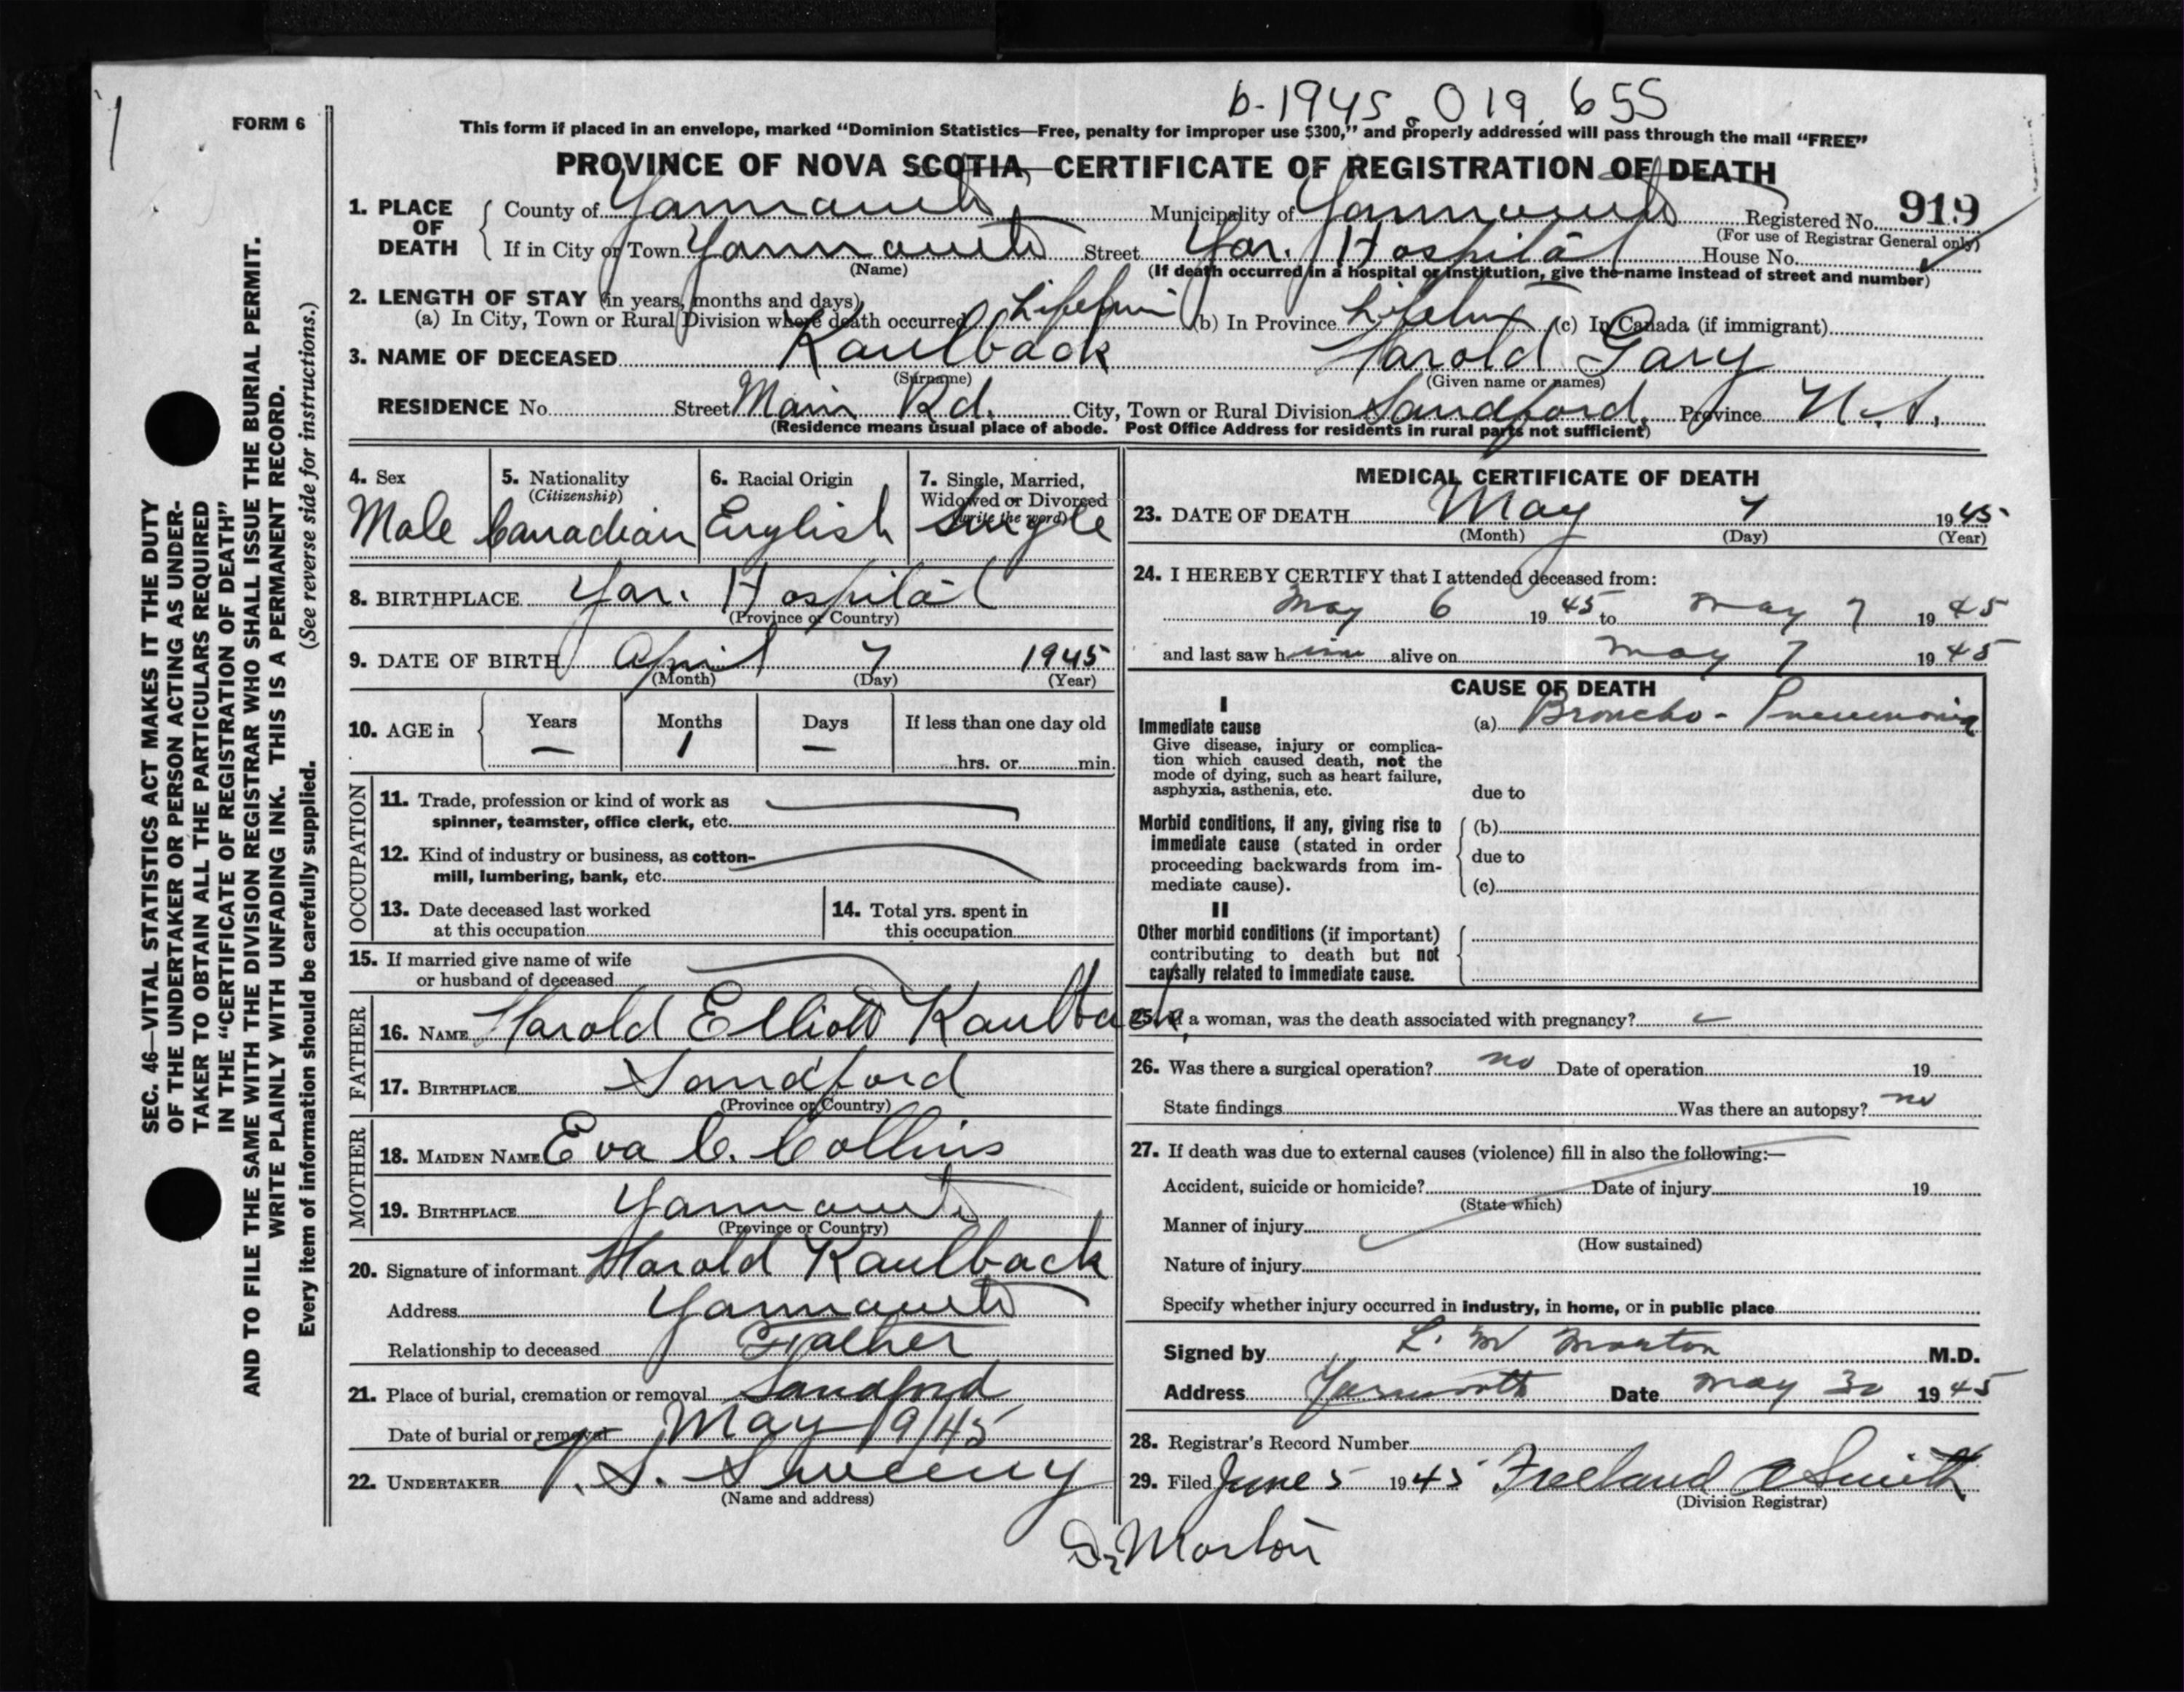 b-1945. 019.655
FORM 6
This form if placed in an envelope, marked “Dominion Statistics—Free, penalty for improper use $300,” and properly addressed will pass through the mail “FREE”
PROVINCE OF NOVA SCOTIA, CERTIFICATE OF REGISTRATION OF DEATH
1. PLACE OF DEATH County of Yarmouth Municipality of Yarmouth Registered No. 919
(For use of Registrar General only)
If in City or Town Yarmouth Street Yar. Hospital House No.
(Name) (If death occurred in a hospital or institution, give the name instead of street and number)
2. LENGTH OF STAY (in years, months and days)
(a) In City, Town or Rural Division where death occurred Lifetime (b) In Province Lifetime (c) In Canada (if immigrant)
3. NAME OF DECEASED Kaulback Harold Gary
(Surname) (Given name or names)
RESIDENCE No. Street Main Rd. City, Town or Rural Division Sandford. Province N.S.
(Residence means usual place of abode. Post Office Address for residents in rural parts not sufficient)
4. Sex Male
5. Nationality (Citizenship) Canadian
6. Racial Origin English
7. Single, Married, Widowed or Divorced (write the word) Single
8. BIRTHPLACE Yar. Hospital
(Province or Country)
9. DATE OF BIRTH April 7 1945
(Month) (Day) (Year)
10. AGE in Years Months Days If less than one day old
— 1 — hrs. or min.
OCCUPATION
11. Trade, profession or kind of work as
spinner, teamster, office clerk, etc.
12. Kind of industry or business, as cotton-
mill, lumbering, bank, etc.
13. Date deceased last worked
at this occupation
14. Total yrs. spent in
this occupation
15. If married give name of wife
or husband of deceased
FATHER
16. NAME Harold Elliott Kaulback
17. BIRTHPLACE Sandford
(Province or Country)
MOTHER
18. MAIDEN NAME Eva C. Collins
19. BIRTHPLACE Yarmouth
(Province or Country)
20. Signature of informant Harold Kaulback
Address Yarmouth
Relationship to deceased Father
21. Place of burial, cremation or removal Sandford
Date of burial or removal May 9/45
22. UNDERTAKER V. S. Sweeny
(Name and address)
MEDICAL CERTIFICATE OF DEATH
23. DATE OF DEATH May 7 1945
(Month) (Day) (Year)
24. I HEREBY CERTIFY that I attended deceased from:
May 6 1945 to May 7 1945
and last saw him alive on May 7 1945
CAUSE OF DEATH
I
Immediate cause (a) Broncho-Pneumonia
Give disease, injury or complica-
tion which caused death, not the
mode of dying, such as heart failure,
asphyxia, asthenia, etc. due to
Morbid conditions, if any, giving rise to (b)
immediate cause (stated in order
proceeding backwards from im- due to
mediate cause). (c)
II
Other morbid conditions (if important)
contributing to death but not
causally related to immediate cause.
25. If a woman, was the death associated with pregnancy?
26. Was there a surgical operation? no Date of operation 19
State findings Was there an autopsy? no
27. If death was due to external causes (violence) fill in also the following:—
Accident, suicide or homicide? Date of injury 19
(State which)
Manner of injury
(How sustained)
Nature of injury
Specify whether injury occurred in industry, in home, or in public place
Signed by L. M Morton M.D.
Address Yarmouth Date May 30 1945
28. Registrar's Record Number
29. Filed June 5 1945 Freeland A Smith
(Division Registrar)
Dr Morton
SEC. 46—VITAL STATISTICS ACT MAKES IT THE DUTY
OF THE UNDERTAKER OR PERSON ACTING AS UNDER-
TAKER TO OBTAIN ALL THE PARTICULARS REQUIRED
IN THE “CERTIFICATE OF REGISTRATION OF DEATH”
AND TO FILE THE SAME WITH THE DIVISION REGISTRAR WHO SHALL ISSUE THE BURIAL PERMIT.
WRITE PLAINLY WITH UNFADING INK. THIS IS A PERMANENT RECORD.
Every item of information should be carefully supplied. (See reverse side for instructions.)